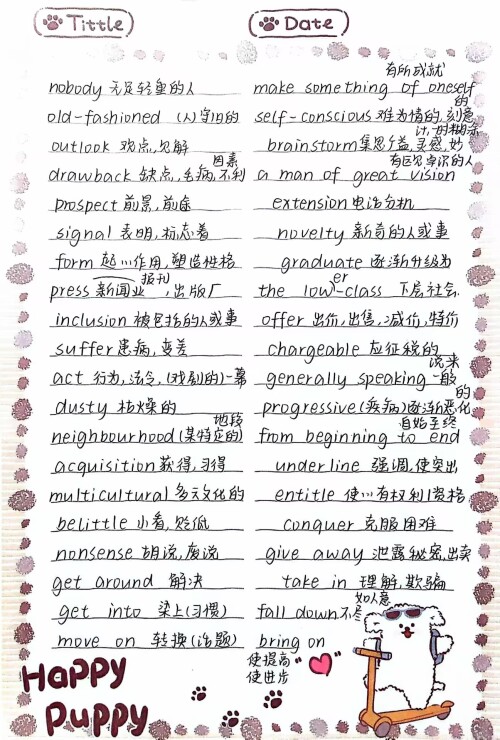 Tittle
Date
nobody 无足轻重的人
old-fashioned (人)守旧的
outlook 观点,见解
drawback 缺点,毛病,不利因素
prospect 前景,前途
signal 表明,标志着
form 起…作用,塑造性格
press 新闻业报刊,出版厂
inclusion 被包括的人或事
suffer 患病,变差
act 行为,法令,(戏剧的)一幕
dusty 枯燥的
neighbourhood (某特定的)地段
acquisition 获得,习得
multicultural 多元文化的
belittle 小看,贬低
nonsense 胡说,废话
get around 解决
get into 染上(习惯)
move on 转换(话题)
make something of oneself 有所成就
self-conscious 难为情的,刻意的
brainstorm 集思广益,灵感,妙计,一时糊涂
a man of great vision 有远见卓识的人
extension 电话分机
novelty 新奇的人或事
graduate 逐渐升级为
the lower-class 下层社会
offer 出价,出售,减价,特价
chargeable 应征税的
generally speaking 一般说来
progressive (疾病)逐渐恶化的
from beginning to end 自始至终
underline 强调,使突出
entitle 使…有权利/资格
conquer 克服困难
give away 泄露秘密,出卖
take in 理解,欺骗
fall down 不尽如人意
bring on
使提高
使进步
Happy
Puppy